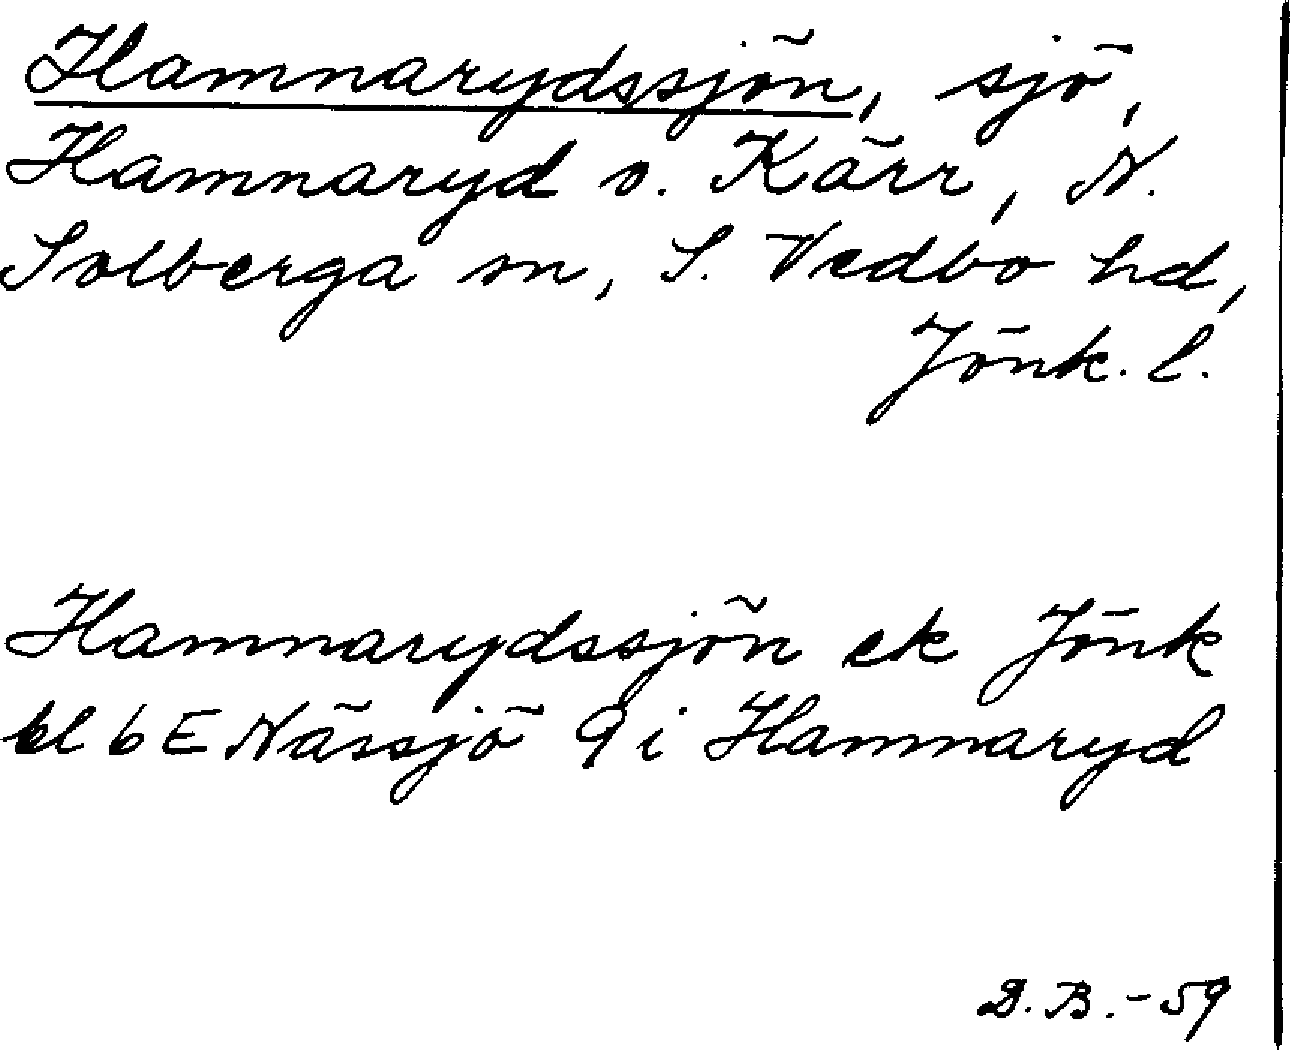 Hamnarydssjön, sjö,
Hamnaryd o. Kärr, N.
Solberga sn, S. Vedbo hd,
Jönk. l.
Hamnarydssjön ek Jönk
bl 6 E Nässjö 9 i Hamnaryd
D. B. - 59